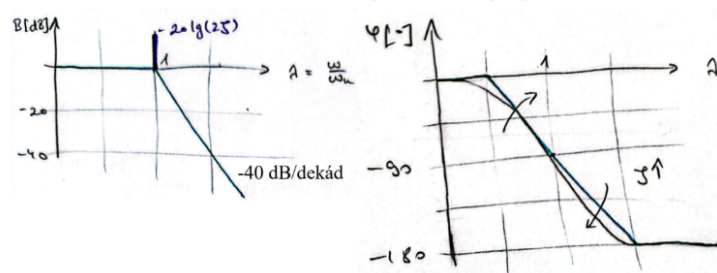 B[dB]
-20 lg(2ζ)
1
λ = ω/ωn
-20
-40
-40 dB/dekád
φ[-]
1
λ
-90
ζ↑
-180